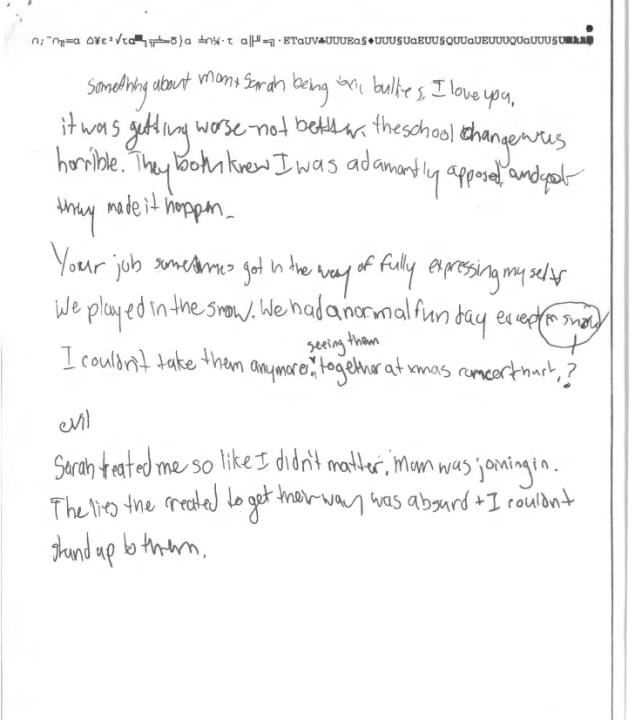 something about mom + Sarah being toxic bullies, I love you,
it was getting worse not better. the school change was
horrible. They both knew I was adamantly apposed, and yet
they made it happen_
Your job sometimes got in the way of fully expressing myself
We played in the snow. We had a normal fun day except in snow
seeing them
I couldn't take them anymore together at xmas concert hurt, ?
evil
Sarah treated me so like I didn't matter, Mom was joining in.
The lies the created to get their way was absurd + I couldn't
stand up to them.